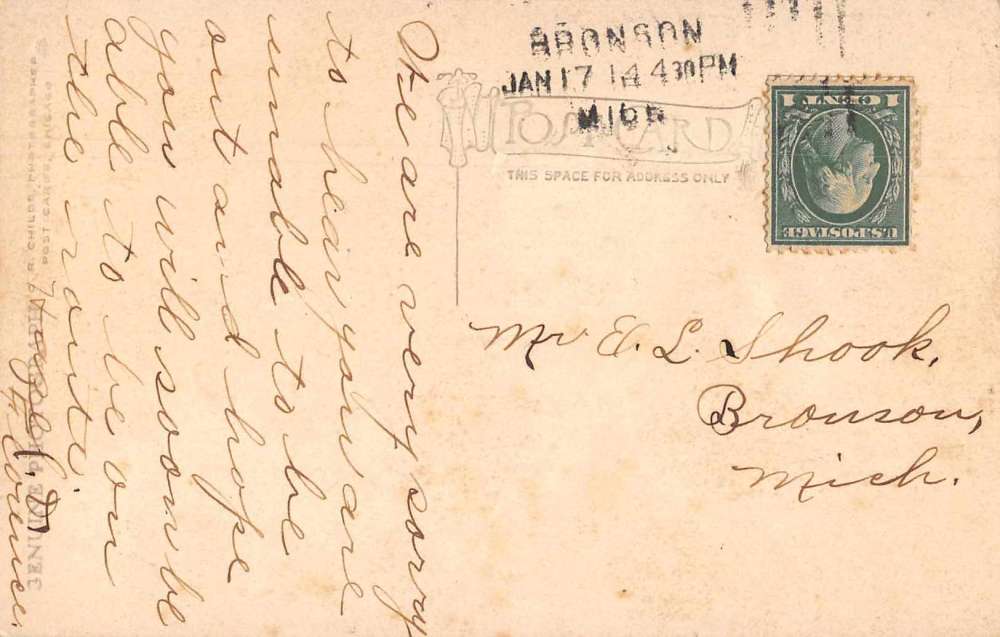 BRONSON
JAN 17 14 4 30 PM
MICH
POST CARD
THIS SPACE FOR ADDRESS ONLY
U.S. POSTAGE
1 CENT 1
Mr E. L. Shook,
Bronson,
Mich.
We are very sorry
to hear you are
unable to be
out and hope
you will soon be
able to be on
the route.